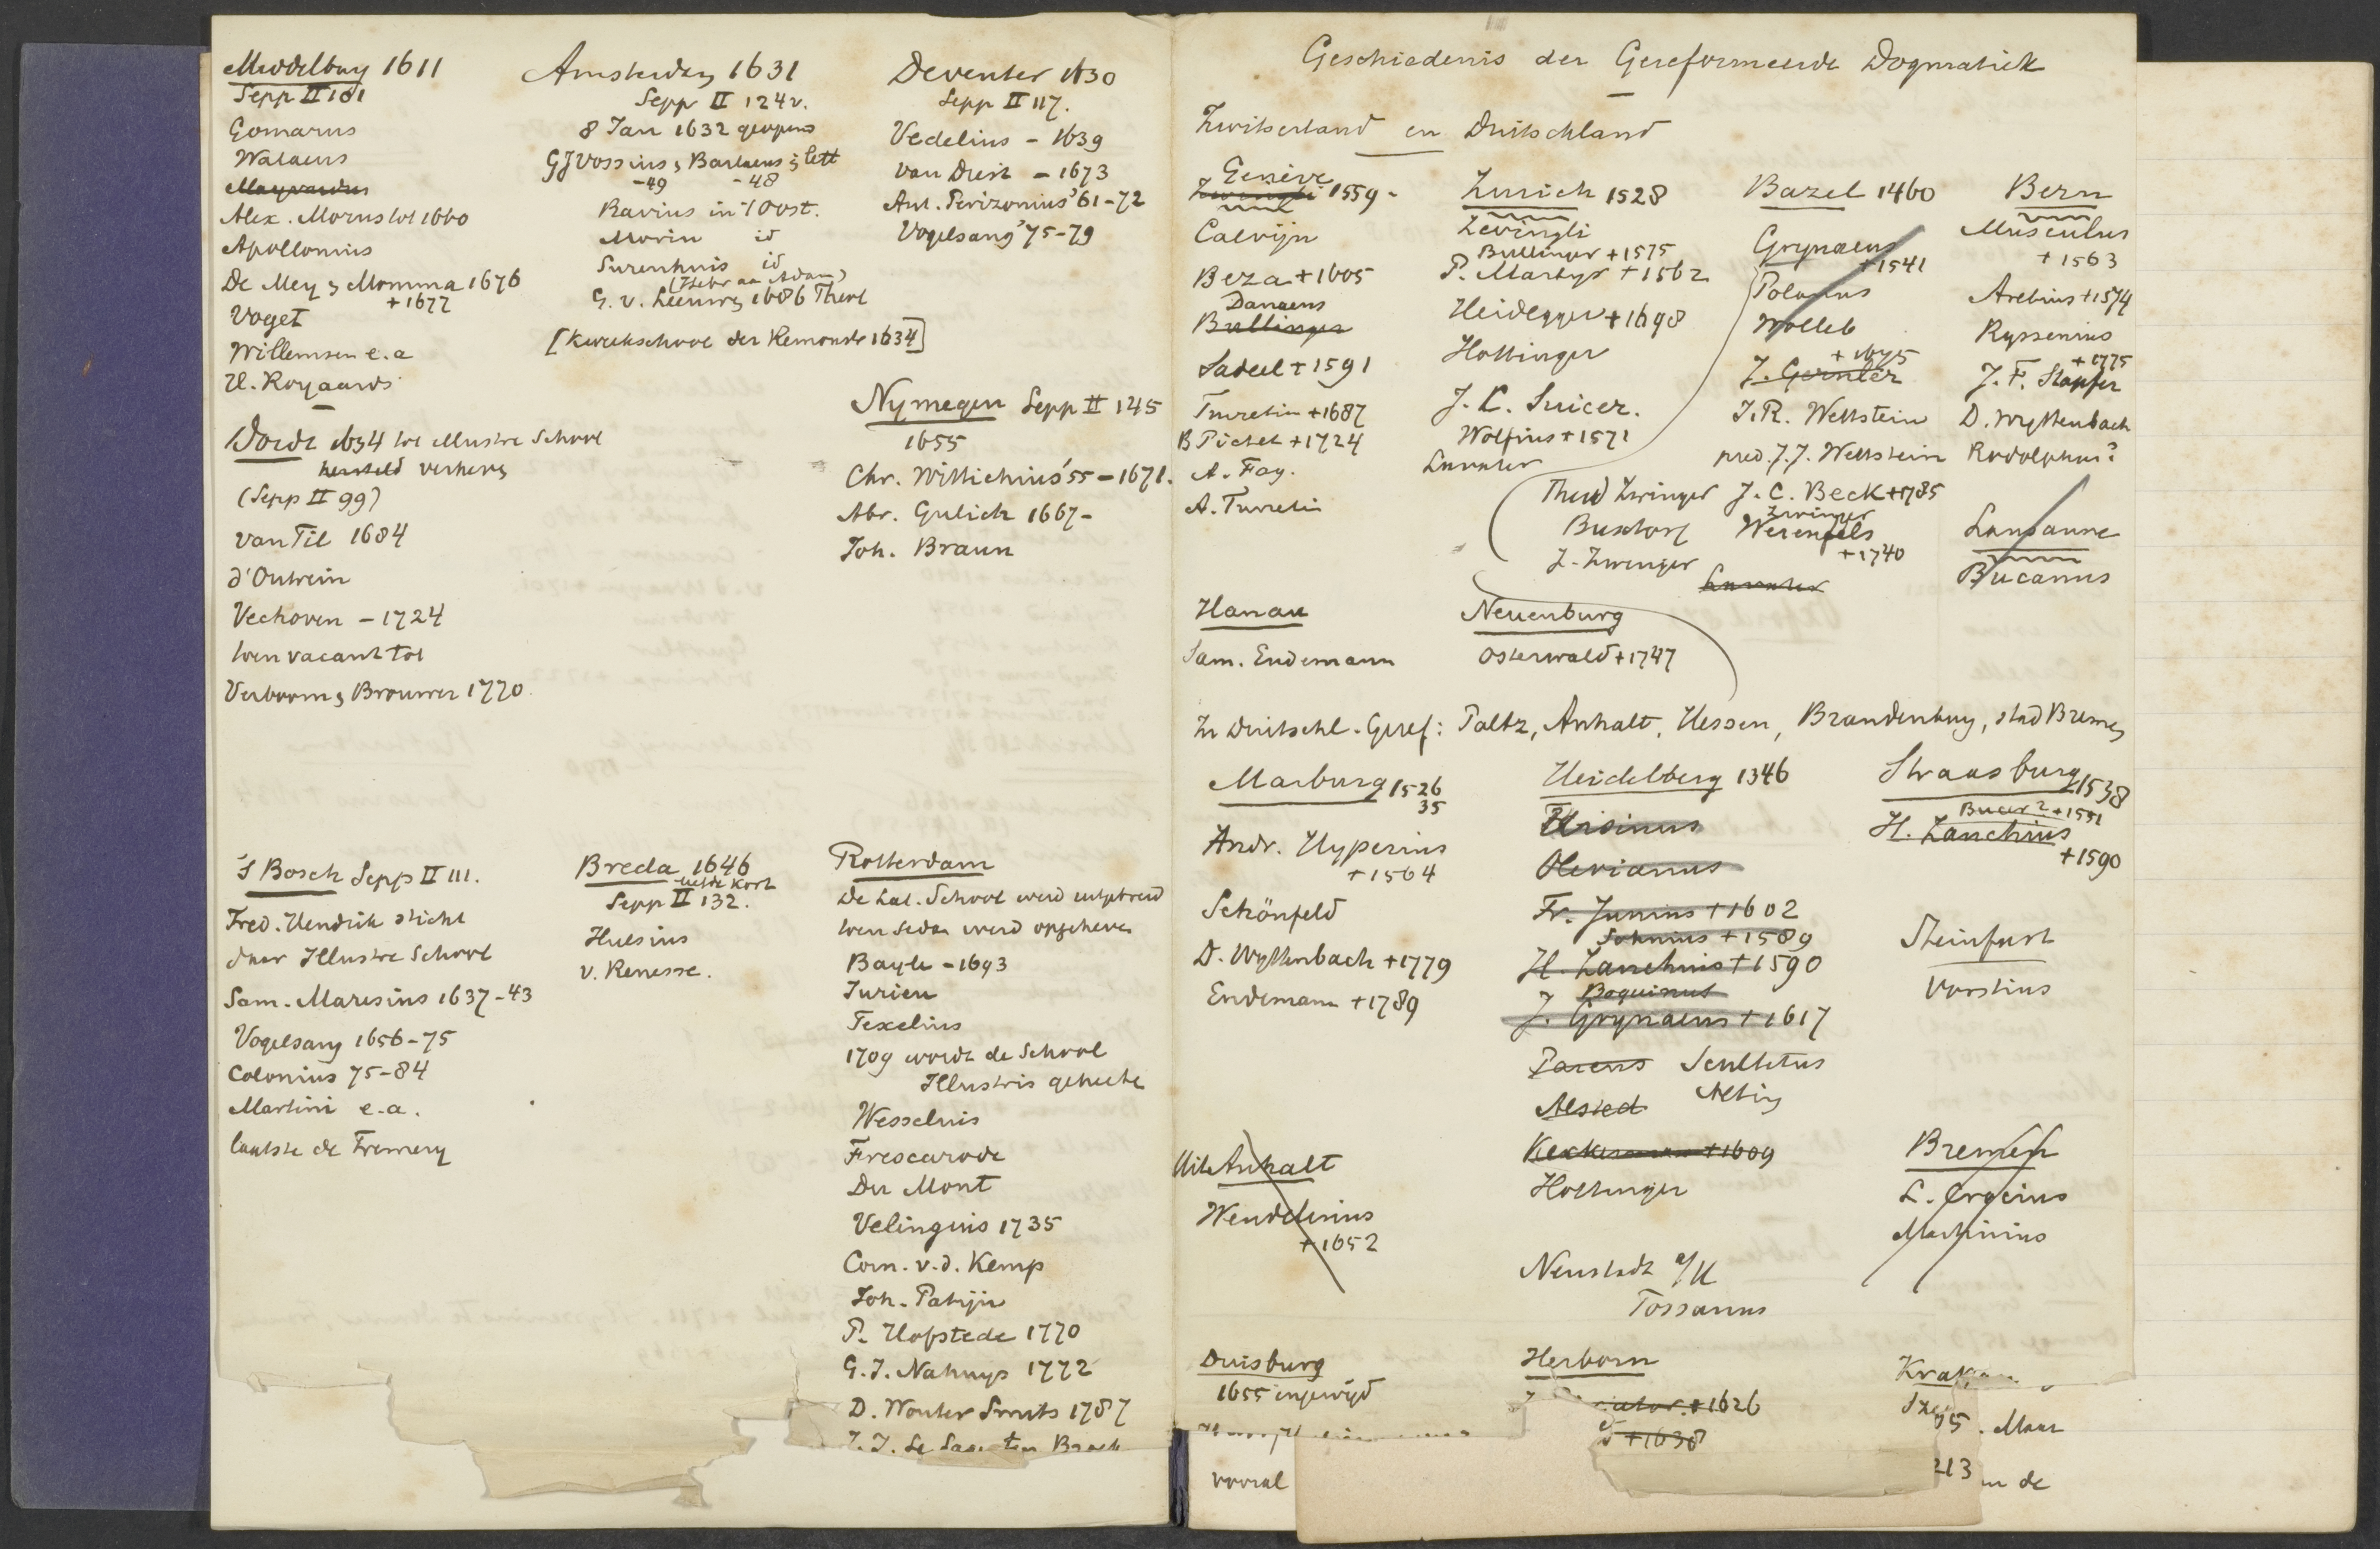 Middelburg 1611
Sepp II 101
Gomarus
Walaeus
Alex. Morus tot 1660
Apollonius
De Mey & Momma 1676
+ 1677
Voget
Willemsen e.a
H. Royaards
Amsterdam 1631
Sepp II 124 v.
8 Jan 1632 geopend
GJ Vossius, Barlaeus; lett
-49 -48
Ravius in 't Oost.
Morin id
Surenhuis id
G. v. Leeuwen 1686 Theol
[Kweekschool der Remonstr 1634]
Deventer 1630
Sepp II 117.
Vedelius - 1639
van Driest - 1673
Ant. Perizonius '61-72
Vogelsang '75-79
Dordt 1634 tot illustre School
hersteld verheven
(Sepp II 99)
van Til 1684
d'Outrein
Vechoven - 1724
toen vacant tot
Verboom & Brouwer 1770
Nymegen Sepp II 145
1655
Chr. Wittichius '55 - 1671.
Abr. Gulich 1667-
Joh. Braun
's Bosch Sepp II 111.
Fred. Hendrik sticht
daar Illustre School
Sam. Maresius 1637-43
Vogelsang 1656-75
Colonius 75-84
Martini e.a.
laatste de Fremery
Breda 1646
Sepp II 132.
Hulsius
v. Renesse.
Rotterdam
De Lat. School werd uitgebreid
toen Sedan werd opgeheven
Bayle - 1693
Jurieu
Texelius
1709 wordt de School
Illustris geheeten
Wesselius
Frescarode
Du Mont
Velingius 1735
Corn. v.d. Kemp
Joh. Patijn
P. Hofstede 1770
G.J. Nahuys 1772
D. Wouter Smits 1787
J.J. Le Sage ten Broek
Geschiedenis der Gereformeerde Dogmatiek
Zwitserland en Duitschland
Genève
Zwingli 1559 -
Calvijn
Beza + 1605
Danaeus
Bullinger
Sadeel + 1591
Turretin + 1687
B Pictet + 1724
A. Fay.
A. Turretin
Zurich 1528
Zwingli
Bullinger + 1575
P. Martyr + 1562
Heidegger + 1698
Hottinger
J. C. Suicer.
Wolfius + 1571
Lavater
Bazel 1460
Grynaeus
+ 1541
Polanus
Wolleb
+ 1675
J. Gernler
J.R. Wettstein
pred. J.J. Wettstein
Theod Zwinger J. C. Beck + 1785
Zwinger
Buxtorf Werenfels
+ 1740
J. Zwinger
Lavater
Bern
Musculus
+ 1563
Aretius + 1574
Ryssenius
+ 1775
J. F. Stapfer
D. Wyttenbach
Rodolphus?
Lausanne
Bucanus
Hanau
Sam. Endemann
Neuenburg
Osterwald + 1747
In Duitschl. Geref: Paltz, Anhalt, Hessen, Brandenburg, stad Bremen
Marburg 1526
35
Andr. Hyperius
+ 1564
Schönfeld
D. Wyttenbach + 1779
Endemann + 1789
Heidelberg 1346
Ursinus
Olevianus
Fr. Junius + 1602
Sohnius + 1589
H. Zanchius + 1590
Boquinus
J. Grynaeus + 1617
Pareus Scultetus
Alsted Alting
Keckermann + 1609
Hottinger
Straasburg 1538
Bucer 2 + 1551
H. Zanchius
+ 1590
Steinfurt
Vorstius
Uit Anhalt
Wendelinus
+ 1652
Bremen
L. Crocius
Martinius
Neustadt a/H
Tossanus
Duisburg
1655 ingewijd
vooral
Herborn
+ 1626
+ 1638
Krakau
95. Maar
213 in de